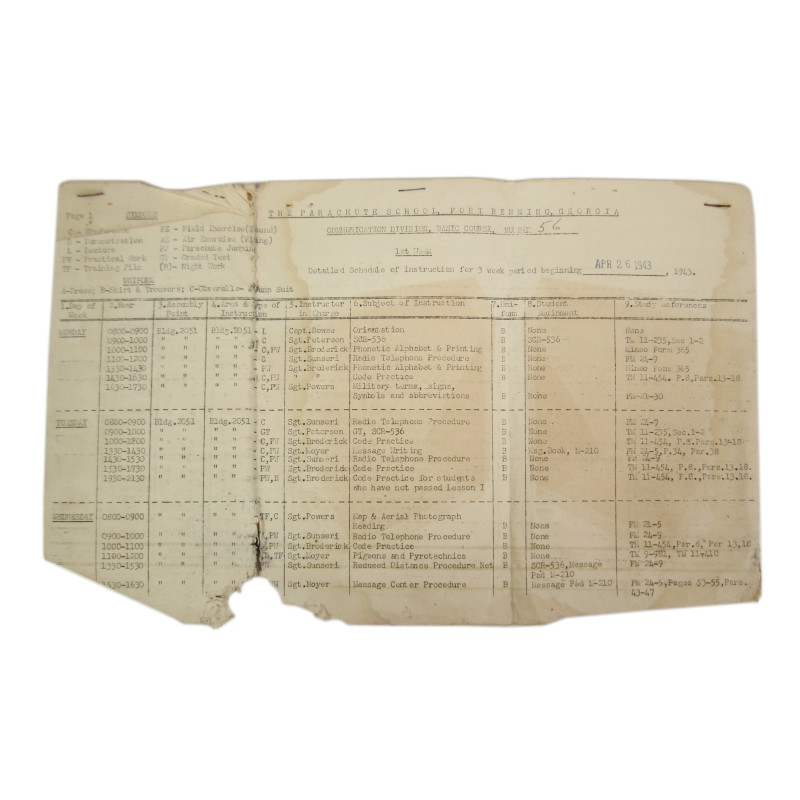 Page 1 SYMBOLS THE PARACHUTE SCHOOL, FORT BENNING, GEORGIA
C - Conference FE - Field Exercise(Sound)
D - Demonstration AE - Air Exercise (Flying) COMMUNICATION DIVISION, BASIC COURSE, 56
L - Lecture PJ - Parachute Jumping
PW - Practical Work GT - Graded Test 1st Week
TF - Training Film (N)- Night Work
Detailed Schedule of Instruction for 3 week period beginning APR 26 1943, 1943.
UNIFORM
A-Dress; B-Shirt & Trousers; C-Coveralls- Jump Suit
1.Day of Week 2.Hour 3.Assembly Point 4.Area & Instruction 5.Instructor in Charge 6.Subject of Instruction 7.Uniform 8.Student Equipment 9.Study References
MONDAY 0800-0900 Bldg.2051 Bldg.2051 - L Capt.Downs Orientation B None None
0900-1000 " " " " C Sgt.Peterson SCR-536 B SCR-536 TM 11-235,Sec 1-2
1000-1100 " " " " C,PW Sgt.Broderick Phonetic Alphabet & Printing B None Mimeo Form 365
1100-1200 " " " " C Sgt.Sunseri Radio Telephone Procedure B None FM 24-9
1330-1430 " " " " PW Sgt.Broderick Phonetic Alphabet & Printing B None Mimeo Form 365
1430-1630 " " " " C,PW " " Code Practice B None TM 11-454, P.8,Pars.13-18
1630-1730 " " " " C,PW Sgt.Powers Military terms, signs,
Symbols and abbreviations B None FM-21-30
TUESDAY 0800-0900 Bldg.2051 Bldg.2051 - C Sgt.Sunseri Radio Telephone Procedure B None FM 24-9
0900-1000 " " " " GT Sgt.Peterson GT, SCR-536 B None TM 11-235,Sec.1-2
1000-1200 " " " " C,PW Sgt.Broderick Code Practice B None TM 11-454, P.8.Pars.13-18
1330-1430 " " " " C,PW Sgt.Moyer Message Writing B Msg.Book, M-210 FM 24-5, P.34, Par.38
1430-1530 " " " " C,PW Sgt.Sunseri Radio Telephone Procedure B None FM 24-9
1530-1730 " " " " PW Sgt.Broderick Code Practice B None TM 11-454, P.8., Pars.13,18.
1930-2130 " " " " PW,N Sgt.Broderick Code Practice for students B None TM 11-454, P.8., Pars.13,18.
who have not passed Lesson I
WEDNESDAY 0800-0900 " " " " TF,C Sgt.Powers Map & Aerial Photograph
Reading B None FM 21-5
0900-1000 " " " " PW Sgt.Sunseri Radio Telephone Procedure B None FM 24-9
1000-1100 " " " " PW Sgt.Broderick Code Practice B None TM 11-454,Par.8, Par 13,18
1100-1200 " " " " TF Sgt.Powers Pigeons and Pyrotechnics B None TM 9-981, TM 11-410
1330-1530 " " " " Sgt.Sunseri Reduced Distance Procedure Net B SCR-536,Message FM 24-9
Pad M-210
1530-1630 " " " " Sgt.Moyer Message Center Procedure B Message Pad M-210 FM 24-5,Pages 53-55, Pars.
43-47